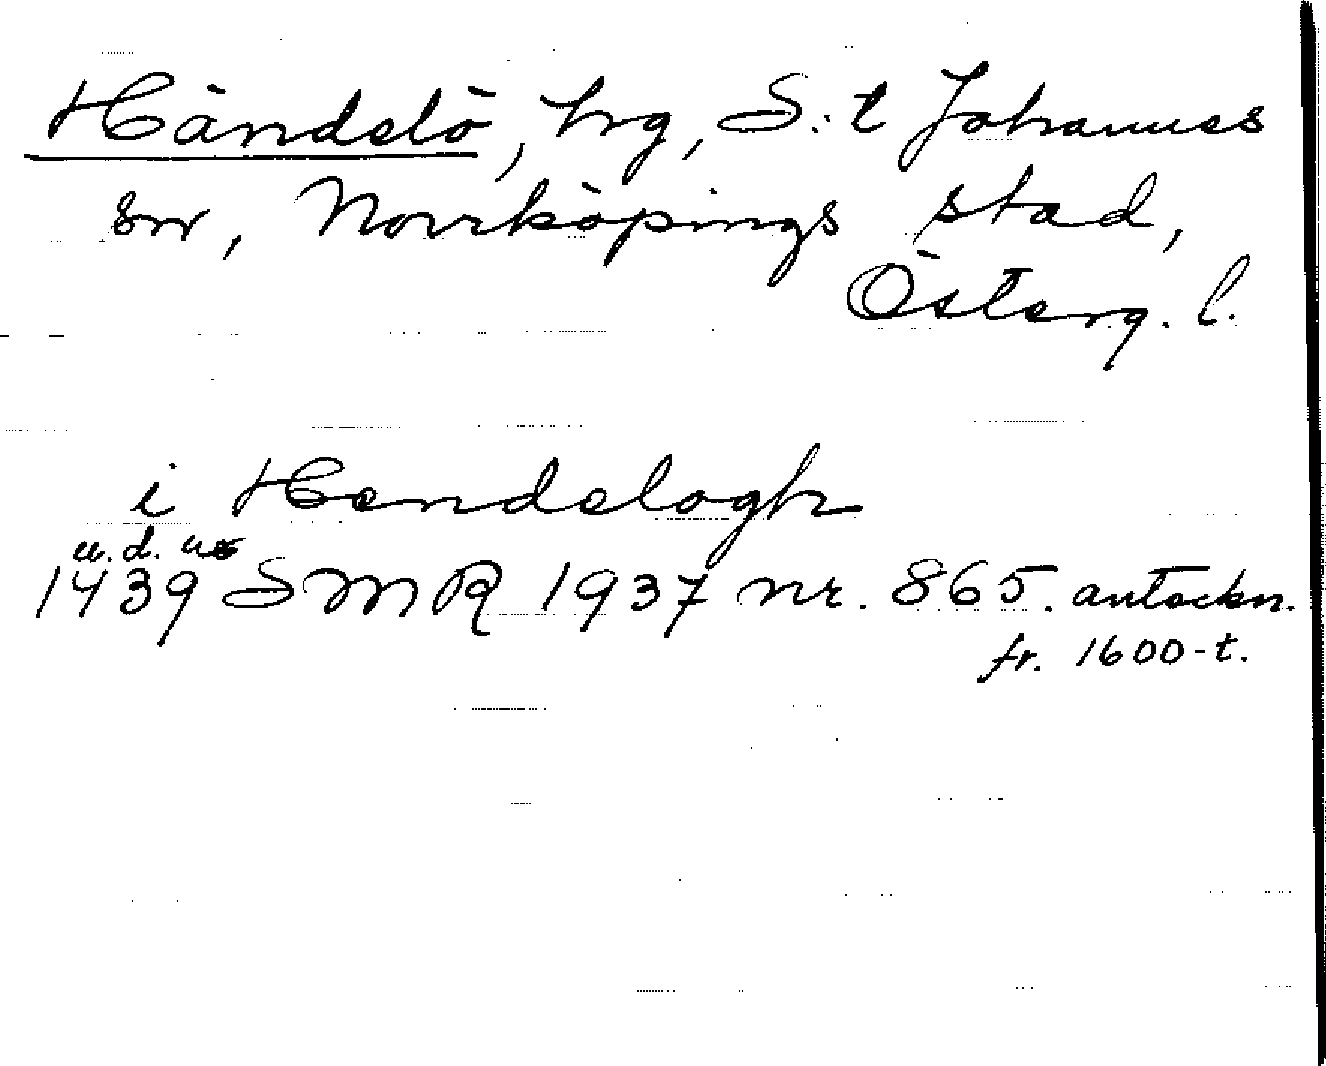 Händelö, hrg, S:t Johannes
sn, Norrköpings stad,
Österg. l.
i Hendelogh
u.d. u
1439 SMR 1937 nr. 865. anteckn.
fr. 1600-t.